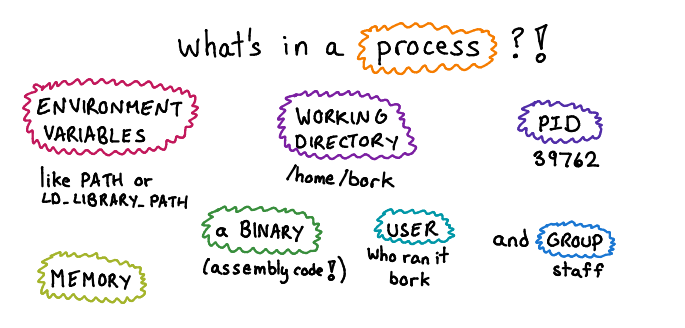 what's in a process ?!
ENVIRONMENT
VARIABLES
like PATH or
LD_LIBRARY_PATH
WORKING
DIRECTORY
/home/bork
PID
39762
MEMORY
a BINARY
(assembly code!)
USER
who ran it
bork
and GROUP
staff